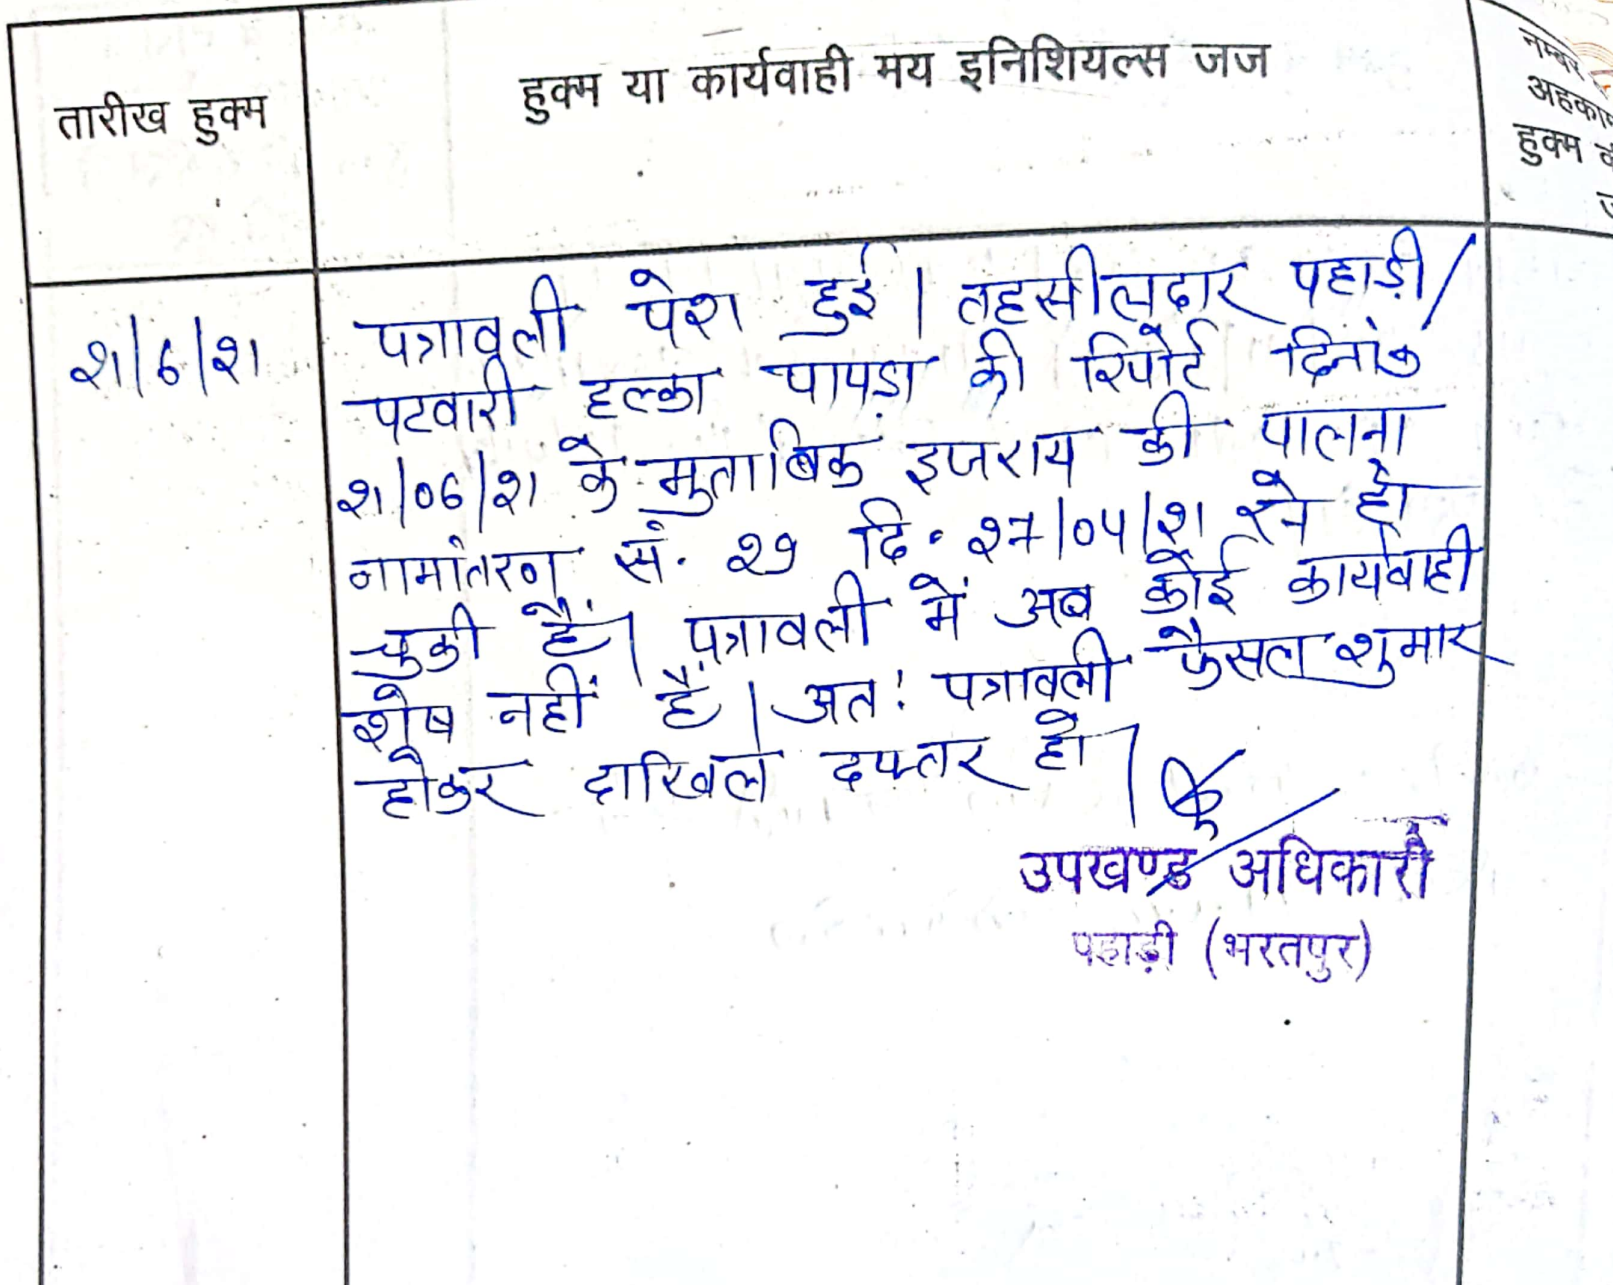 तारीख हुक्म
हुक्म या कार्यवाही मय इनिशियल्स जज
नम्बर
हुक्म
२१/6/२१
पत्रावली पेश हुई। तहसीलदार पहाड़ी/
पटवारी हल्का पापड़ा की रिपोर्ट दिनांक
२१/06/२१ के मुताबिक इजराय की पालना
नामांतरण सं. २९ दि. २7/04/२१ से हो
चुकी है। पत्रावली में अब कोई कार्यवाही
शेष नहीं है। अत: पत्रावली फैसल शुमार
होकर दाखिल दफ्तर हो।
उपखण्ड अधिकारी
पहाड़ी (भरतपुर)